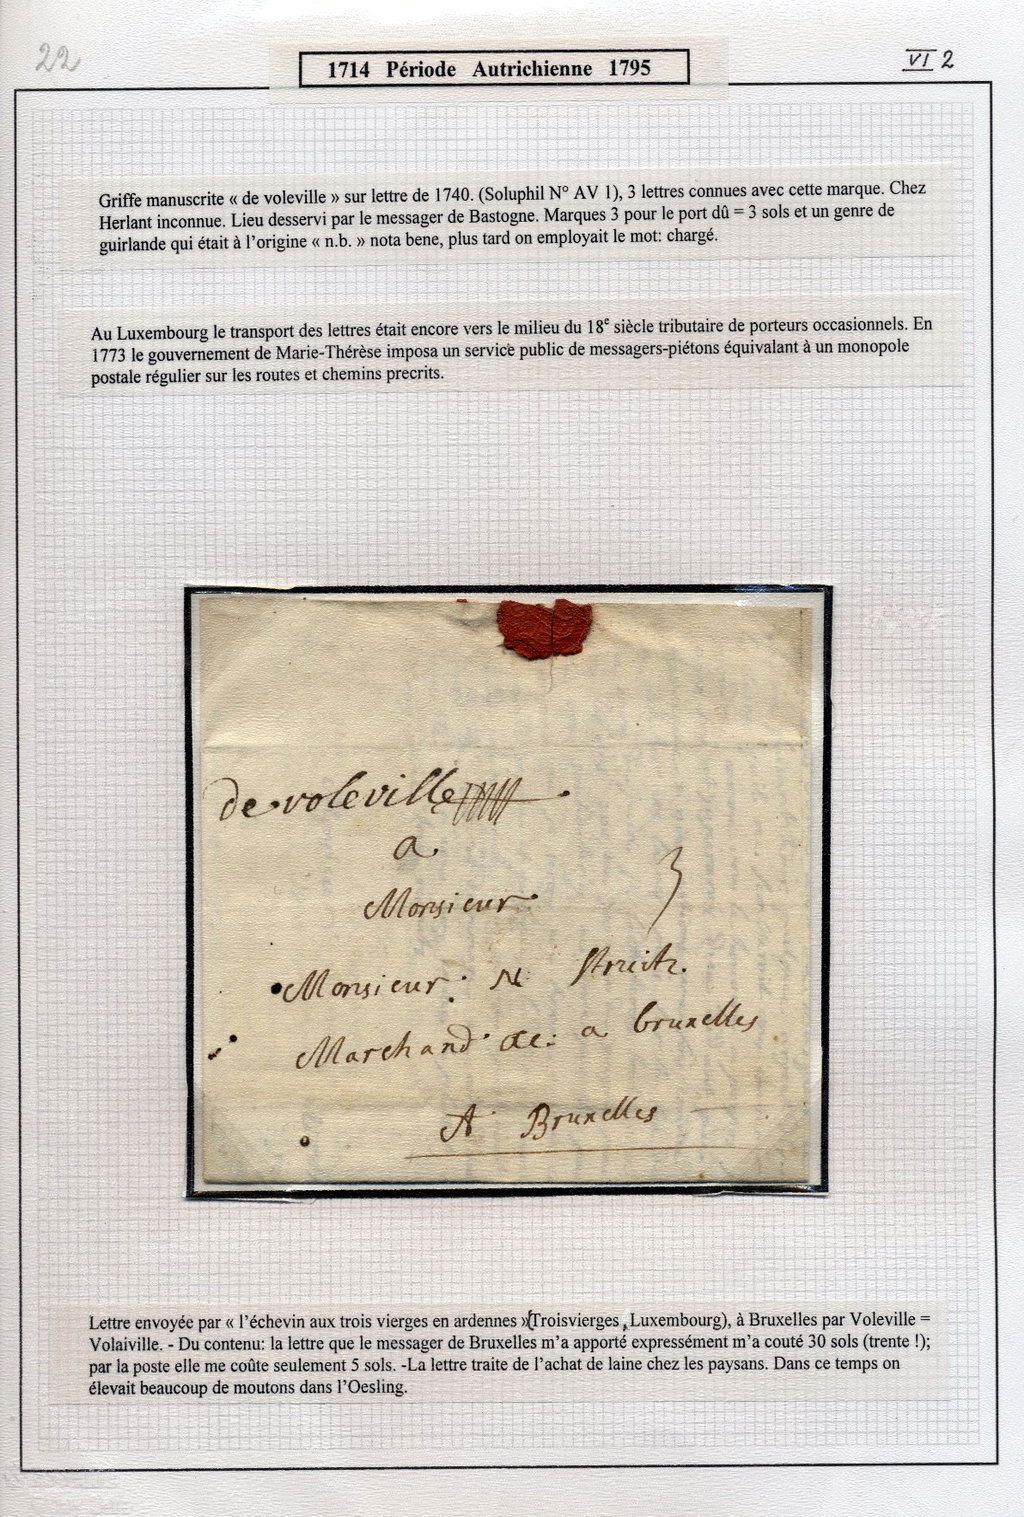 22
1714 Période Autrichienne 1795
VI 2
Griffe manuscrite « de voleville » sur lettre de 1740. (Soluphil N° AV 1), 3 lettres connues avec cette marque. Chez
Herlant inconnue. Lieu desservi par le messager de Bastogne. Marques 3 pour le port dû = 3 sols et un genre de
guirlande qui était à l’origine « n.b. » nota bene, plus tard on employait le mot: chargé.
Au Luxembourg le transport des lettres était encore vers le milieu du 18e siècle tributaire de porteurs occasionnels. En
1773 le gouvernement de Marie-Thérèse imposa un service public de messagers-piétons équivalant à un monopole
postale régulier sur les routes et chemins precrits.
de voleville
a
3
Monsieur
Monsieur N
Marchand &c: a bruxelles
A Bruxelles
Lettre envoyée par « l’échevin aux trois vierges en ardennes »(Troisvierges, Luxembourg), à Bruxelles par Voleville =
Volaiville. - Du contenu: la lettre que le messager de Bruxelles m’a apporté expressément m’a couté 30 sols (trente !);
par la poste elle me coûte seulement 5 sols. -La lettre traite de l’achat de laine chez les paysans. Dans ce temps on
élevait beaucoup de moutons dans l’Oesling.